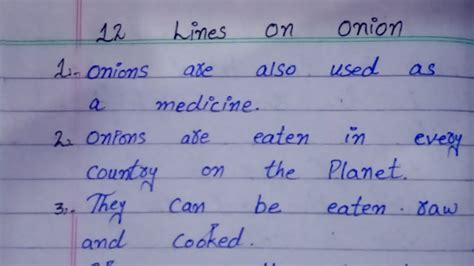 12 Lines on onion
1.- Onions are also used as
a medicine.
2. Onions are eaten in every
Country on the Planet.
3.- They can be eaten raw
and cooked.